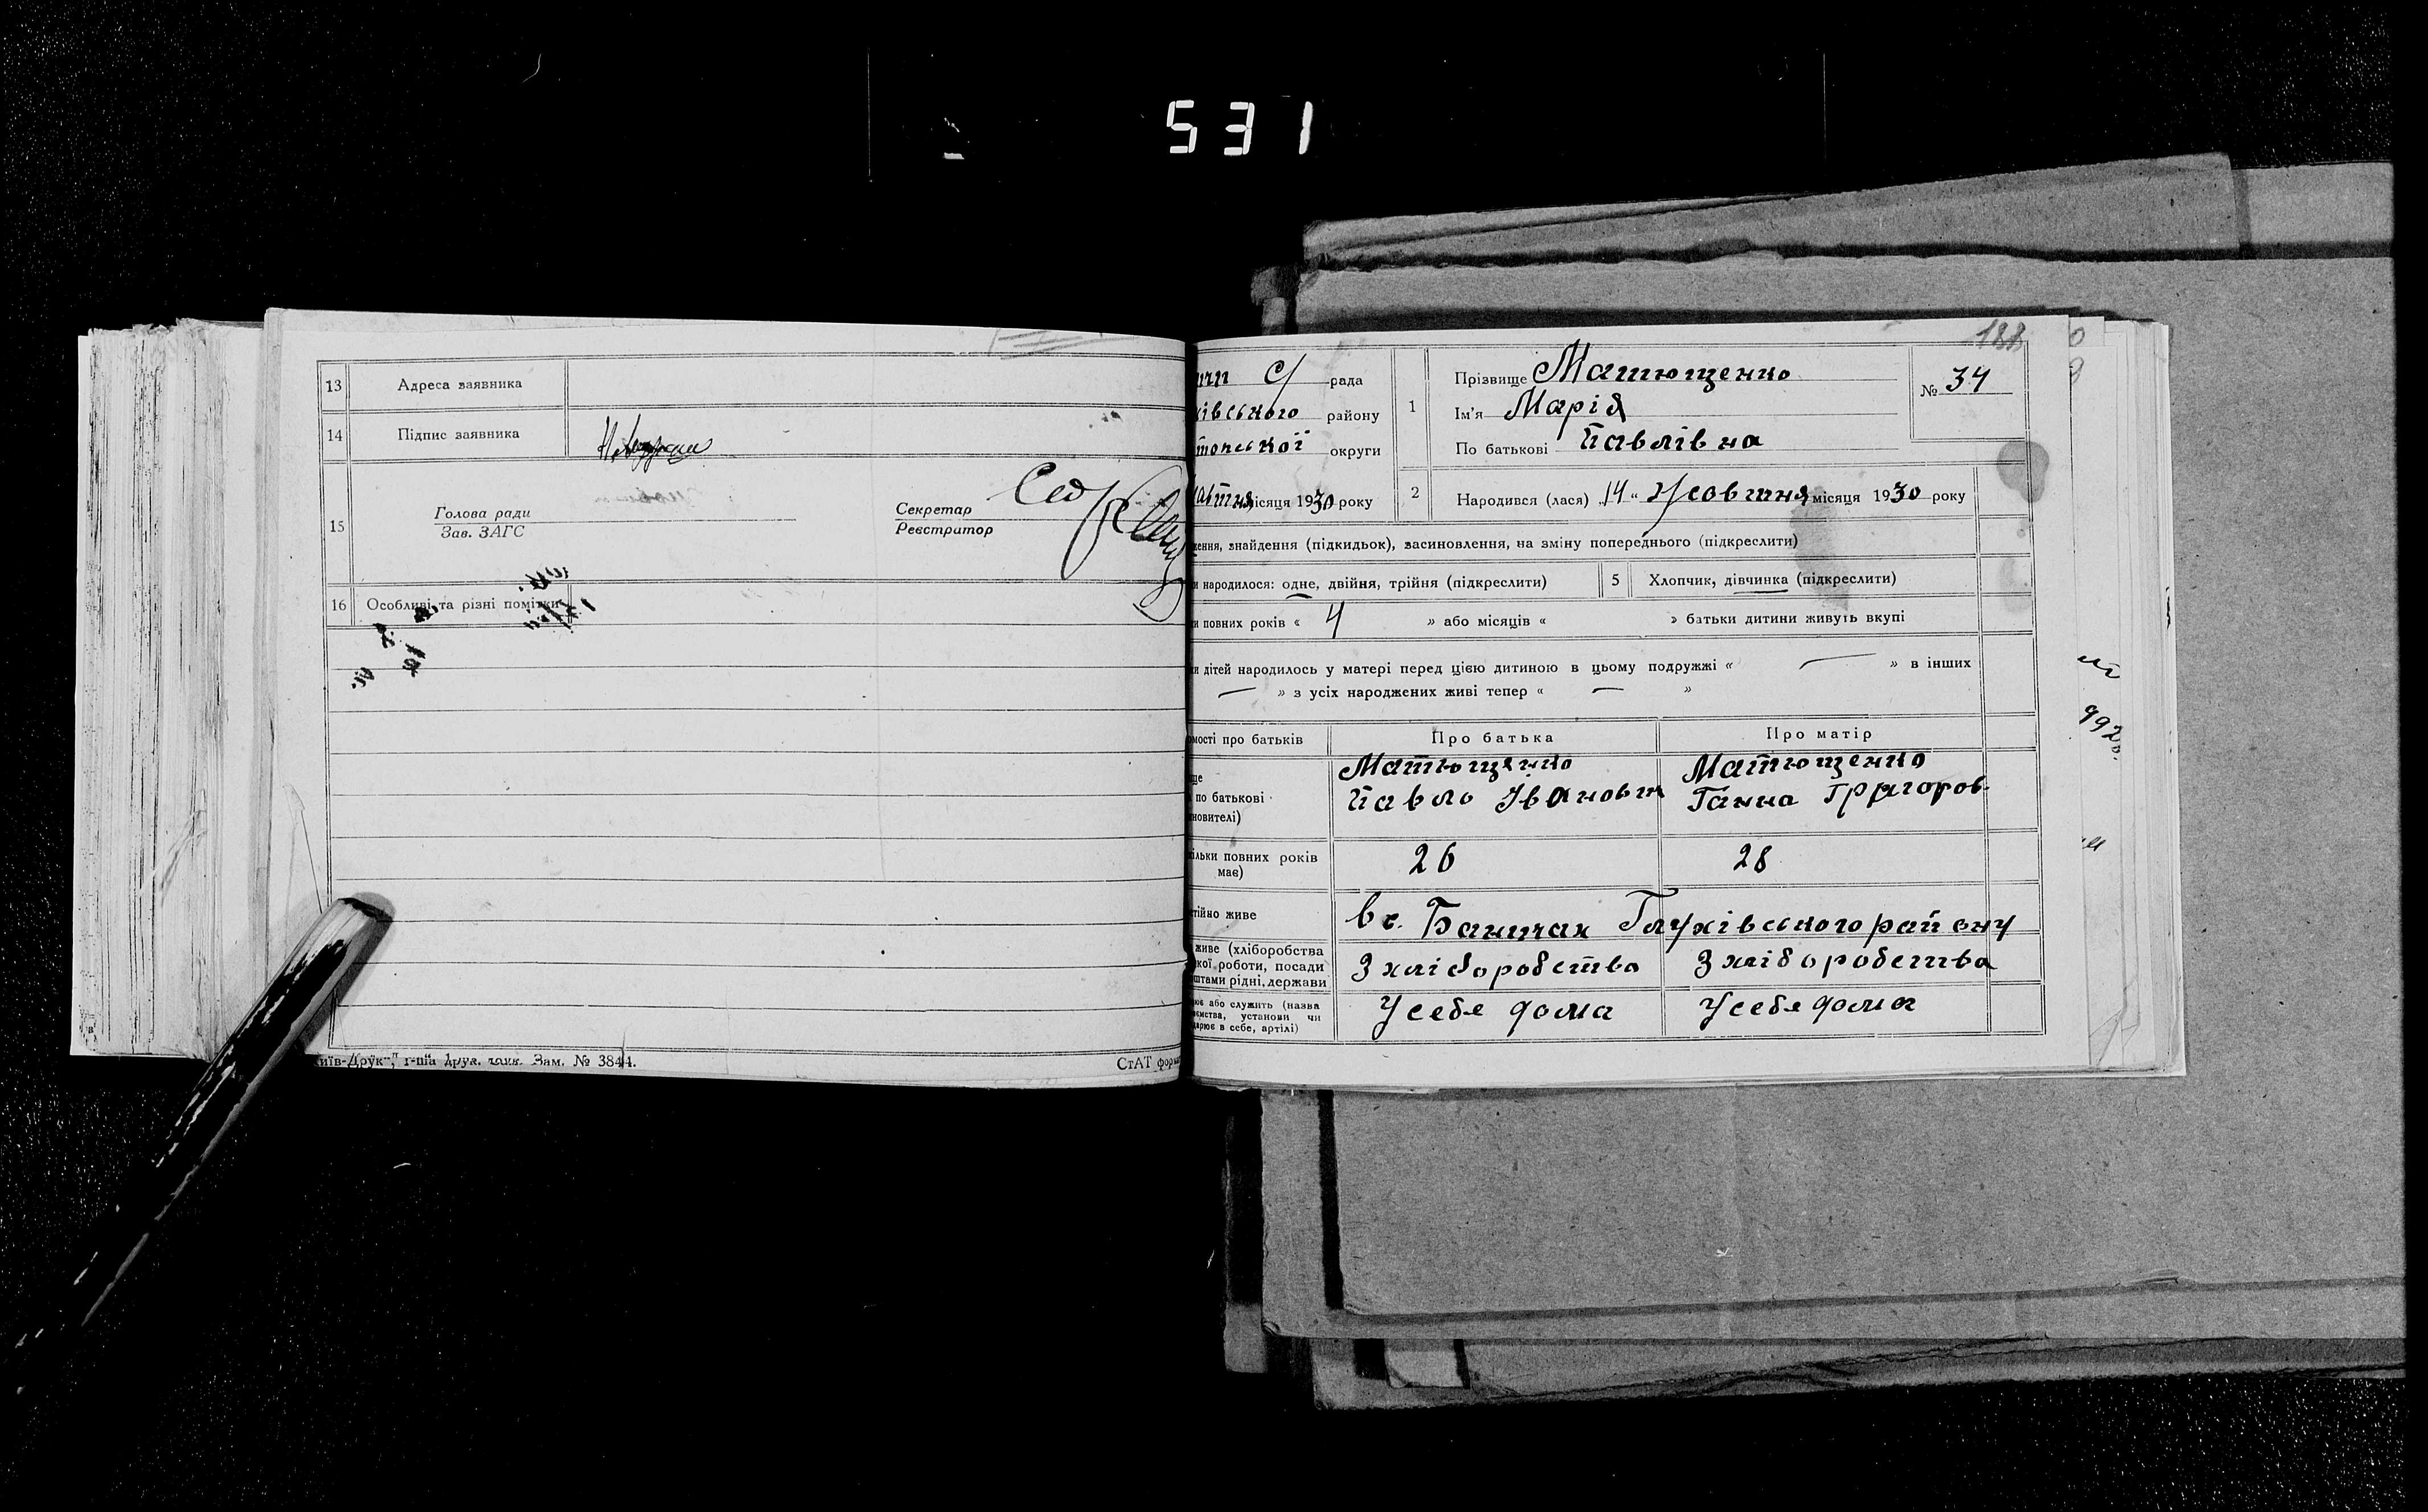 531
13 Адреса заявника
14 Підпис заявника
15 Голова ради
Зав. ЗАГС
Секретар
Реєстратор
16 Особливі та різні помітки
г-ша друк. Зам. № 3844.
СтАТ
188
С/ рада
району
округи
місяця 1930 року
1 Прізвище Матющенко
Ім'я Марія
По батькові Павлівна
№ 34
2 Народився (лася) „14“ Жовтня місяця 1930 року
знайдення (підкидьок), засиновлення, на зміну попереднього (підкреслити)
народилося: одне, двійня, трійня (підкреслити)
5 Хлопчик, дівчинка (підкреслити)
повних років « 4 » або місяців « » батьки дитини живуть вкупі
дітей народилось у матері перед цією дитиною в цьому подружжі « — » в інших
— » з усіх народжених живі тепер « — »
про батьків
Про батька
Про матір
по батькові
Матющенко
Павло Іванович
Матющенко
Ганна Григоров.
повних років
має)
26
28
живе
в с. Баничах Глухівського району
живе (хліборобства
роботи, посади
рідні, держави
З хліборобства
З хліборобства
або служить (назва
установи чи
в себе, артілі)
У себе дома
У себе дома